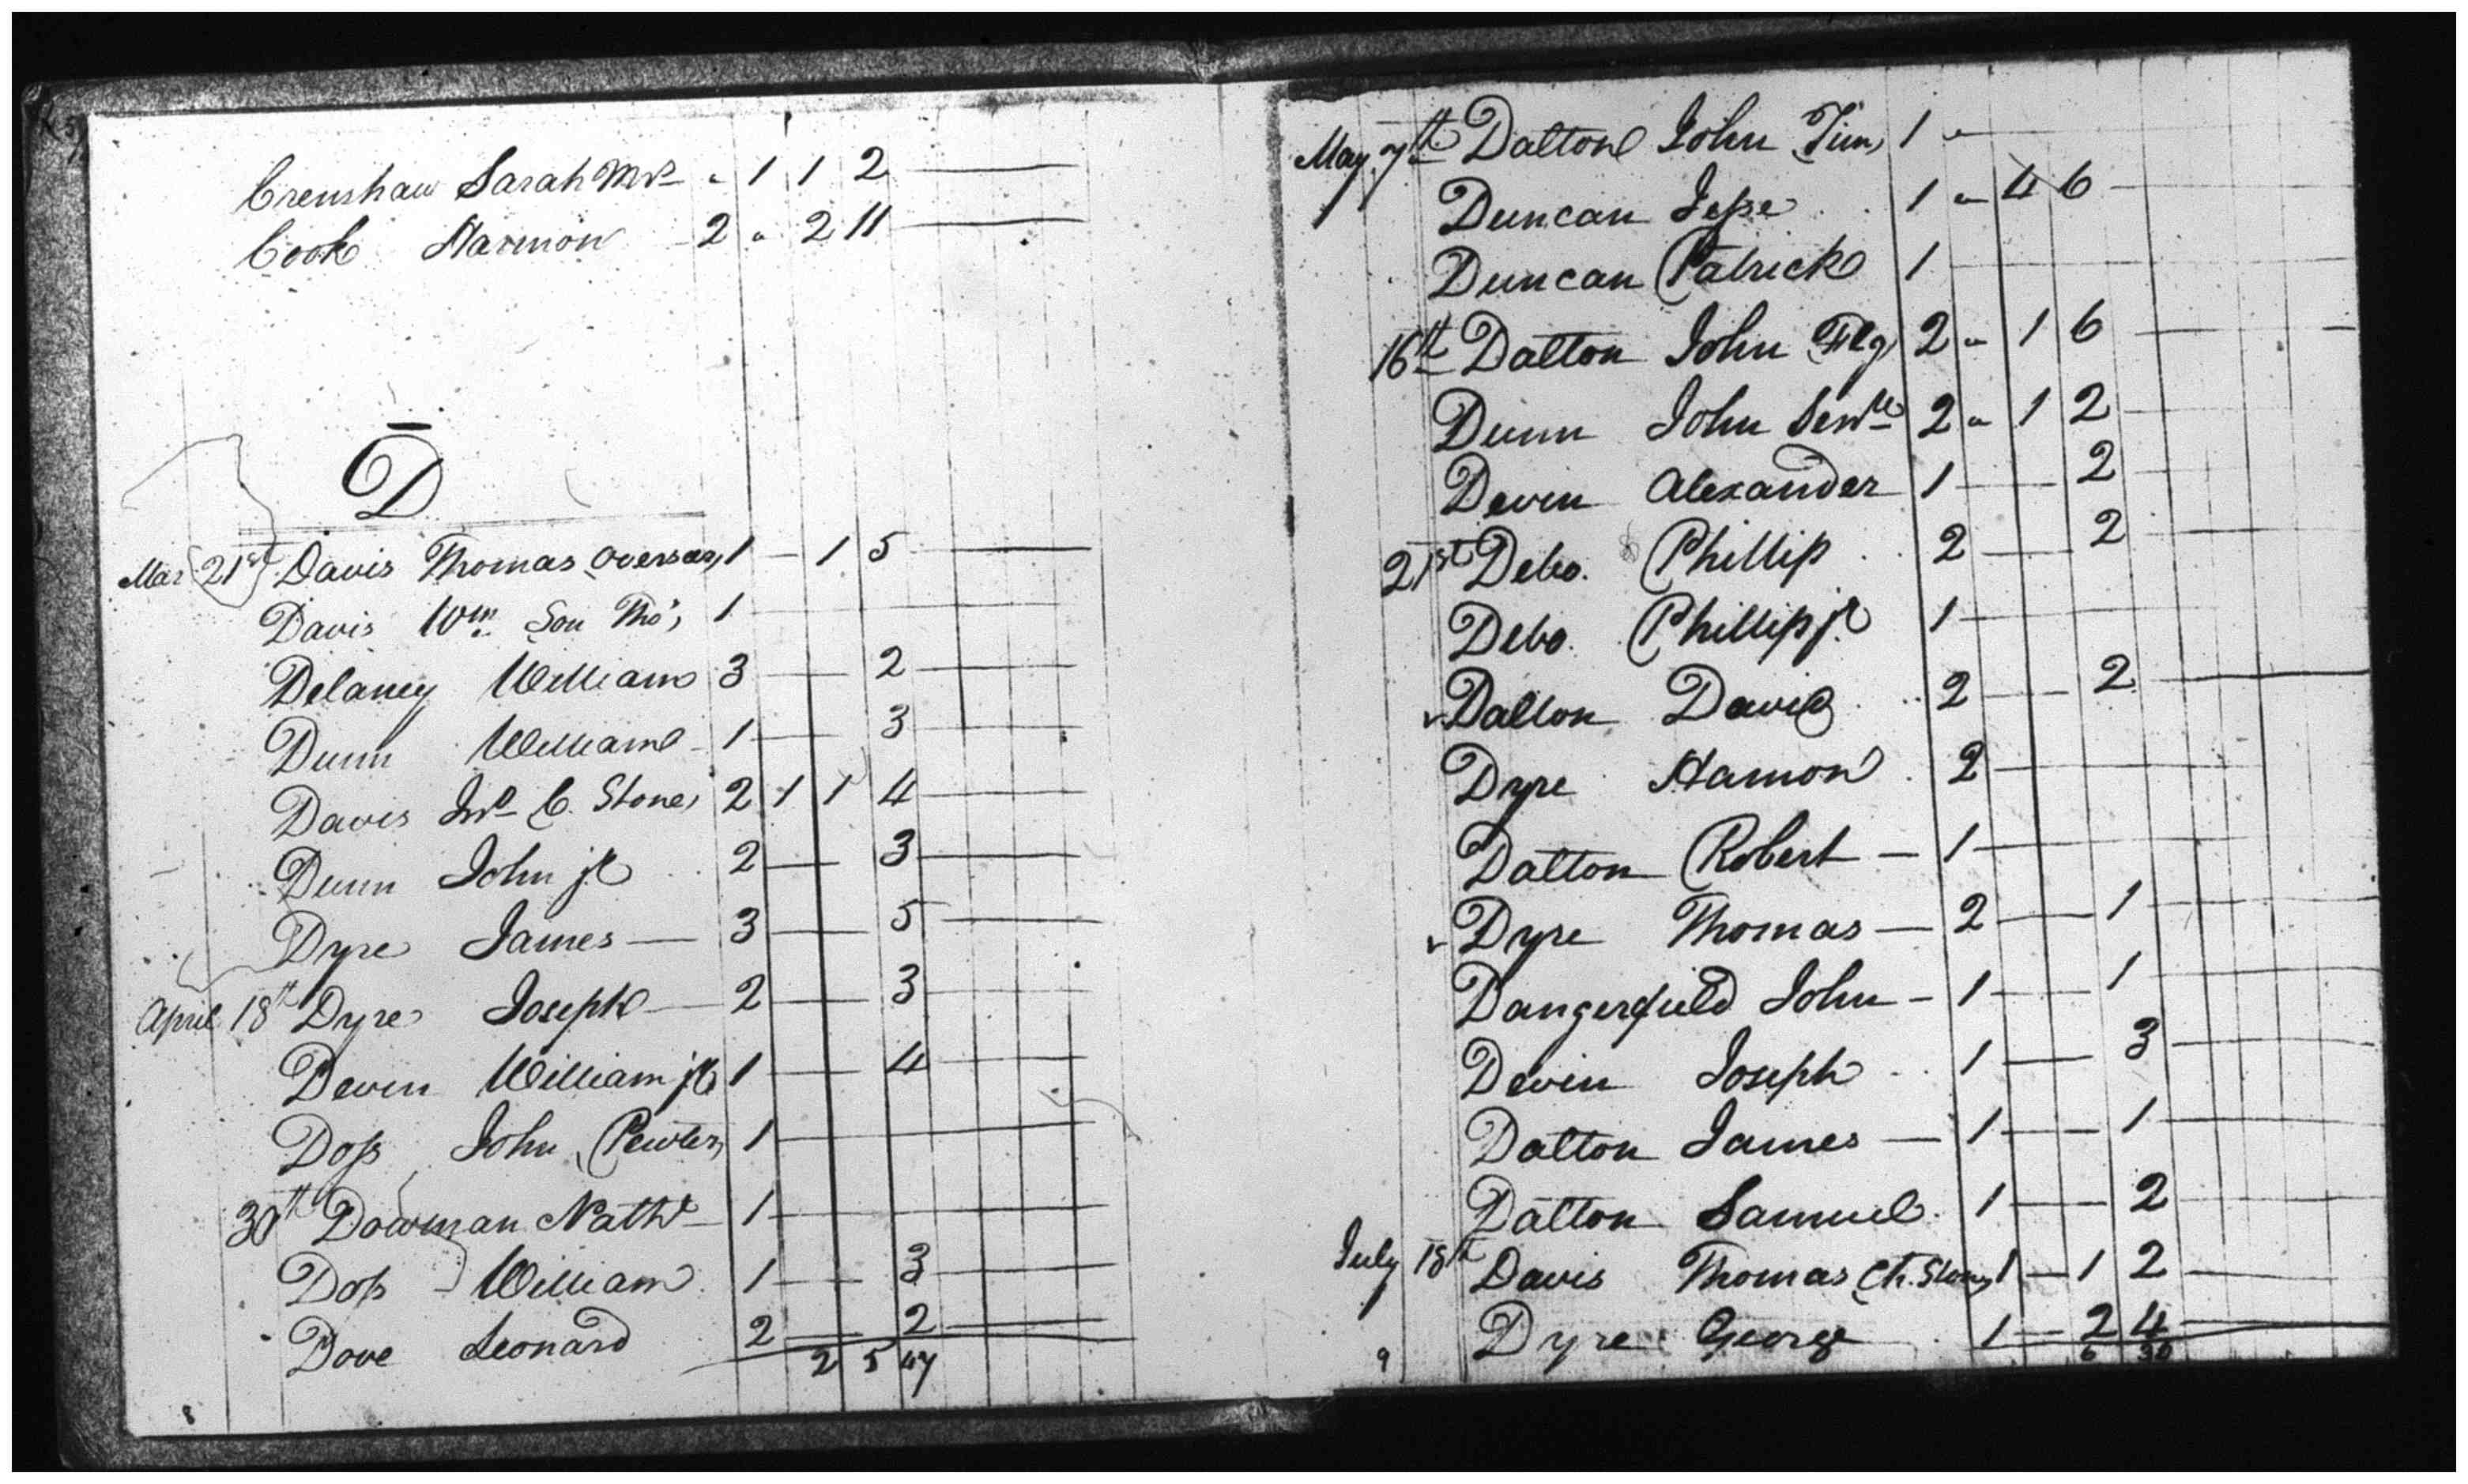 Crenshaw Sarah Mrs - " 1 1 2
Cook Harmon - 2 " 2 11
D
Mar 21st Davis Thomas overseer, 1 - 1 5
Davis Wm Son Thos, 1
Delaney William 3 - 2
Dunn William - 1 - 3
Davis Jno C. Stone, 2 1 1 4
Dunn John jr 2 - 3
Dyre James - 3 - 5
April 18th Dyre Joseph - 2 - 3
Devin William jr 1 - 4
Doss John (Pewter) 1
30th Dowman Nathl - 1
Doss William 1 - 3
Dove Leonard 2 - 2
2 5 47
8
May 7th Dalton John Tim, 1 "
Duncan Jesse 1 " 4 6
Duncan Patrick 1
16th Dalton John 2 " 1 6
Dunn John Senr 2 " 1 2
Devin Alexander 1 - 2
21st Debo Phillip 2 - 2
Debo Phillip jr 1
Dalton David 2 - 2
Dyre Hamon 2
Dalton Robert - 1
Dyre Thomas - 2 - 1
Dangerfield John - 1 - 1
Devin Joseph 1 - 3
Dalton James - 1 - 1
Dalton Samuel 1 - 2
July 18th Davis Thomas (Ch. Stone) 1 - 1 2
Dyre George 1 - 2 4
9